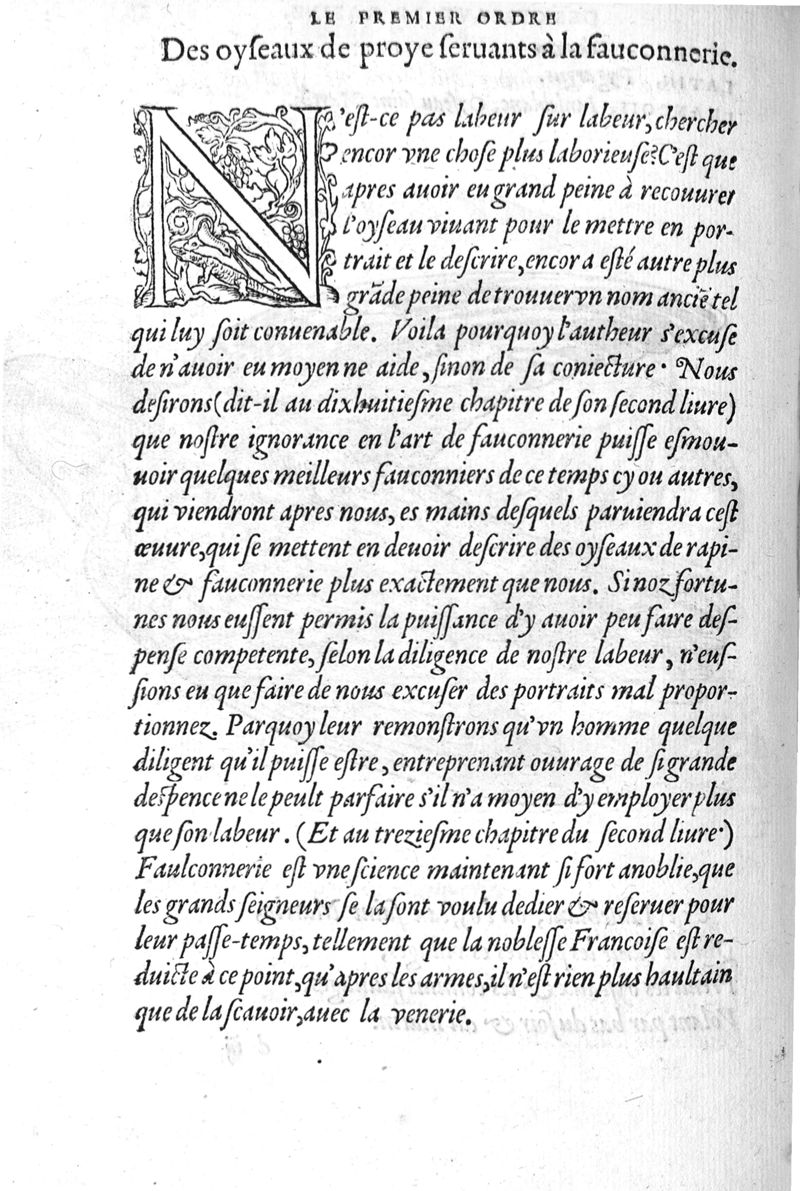 LE PREMIER ORDRE
Des oyſeaux de proye ſeruants à la fauconnerie.
N'eſt-ce pas labeur ſur labeur, chercher
encor vne choſe plus laborieuſe? C'eſt que
apres auoir eu grand peine à recouurer
l'oyſeau viuant pour le mettre en por-
trait et le deſcrire, encor a eſté autre plus
grāde peine de trouuer vn nom anciē tel
qui luy ſoit conuenable. Voila pourquoy l'autheur s'excuſe
de n'auoir eu moyen ne aide, ſinon de ſa coniecture. Nous
deſirons (dit-il au dixhuitieſme chapitre de ſon ſecond liure)
que noſtre ignorance en l'art de fauconnerie puiſſe eſmou-
uoir quelques meilleurs fauconniers de ce temps cy ou autres,
qui viendront apres nous, es mains deſquels paruiendra ceſt
œuure, qui ſe mettent en deuoir deſcrire des oyſeaux de rapi-
ne & fauconnerie plus exactement que nous. Si noz fortu-
nes nous euſſent permis la puiſſance d'y auoir peu faire deſ-
penſe competente, ſelon la diligence de noſtre labeur, n'euſ-
ſions eu que faire de nous excuſer des portraits mal propor-
tionnez. Parquoy leur remonſtrons qu'vn homme quelque
diligent qu'il puiſſe eſtre, entreprenant ouurage de ſi grande
deſpence ne le peult parfaire s'il n'a moyen d'y employer plus
que ſon labeur. (Et au trezieſme chapitre du ſecond liure)
Faulconnerie eſt vne ſcience maintenant ſi fort anoblie, que
les grands ſeigneurs ſe la ſont voulu dedier & reſeruer pour
leur paſſe-temps, tellement que la nobleſſe Francoiſe eſt re-
duicte à ce point, qu'apres les armes, il n'eſt rien plus haultain
que de la ſcauoir, auec la venerie.